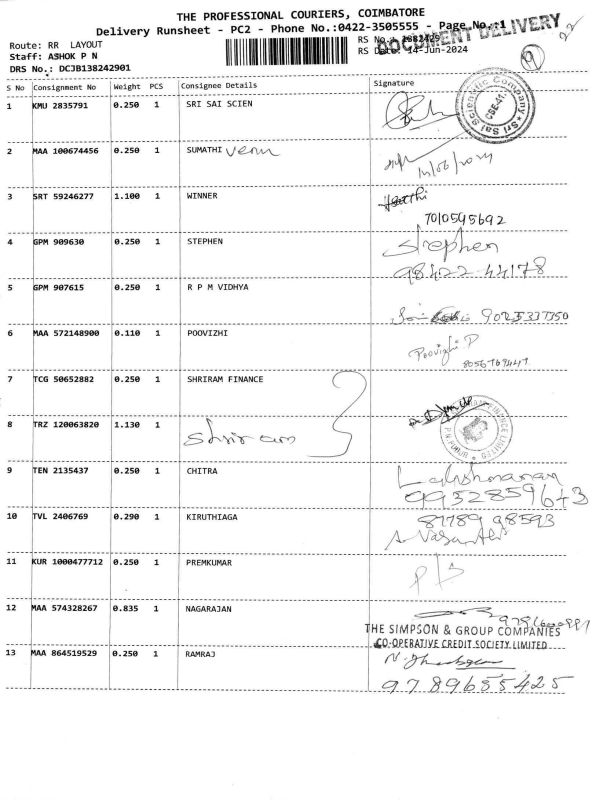 THE PROFESSIONAL COURIERS, COIMBATORE
Delivery Runsheet - PC2 - Phone No.:0422-3505555 - Page No.:1
DOCUMENT DELIVERY
Route: RR LAYOUT
RS No.: 1382429
Staff: ASHOK P N
RS Date: 14-Jun-2024
DRS No.: DCJB138242901
S No Consignment No Weight PCS Consignee Details Signature
1 KMU 2835791 0.250 1 SRI SAI SCIEN
Sri Sai Scientific Company
CBE-41
2 MAA 100674456 0.250 1 SUMATHI
3 SRT 59246277 1.100 1 WINNER
7010595692
4 GPM 909630 0.250 1 STEPHEN Stephen
98422 44178
5 GPM 907615 0.250 1 R P M VIDHYA
6 MAA 572148900 0.110 1 POOVIZHI Poovizhi P
7 TCG 50652882 0.250 1 SHRIRAM FINANCE
8 TRZ 120063820 1.130 1 Shriram
9 TEN 2135437 0.250 1 CHITRA Lakshmanan
10 TVL 2406769 0.290 1 KIRUTHIAGA 87789 98593
11 KUR 1000477712 0.250 1 PREMKUMAR
12 MAA 574328267 0.835 1 NAGARAJAN
THE SIMPSON & GROUP COMPANIES
CO-OPERATIVE CREDIT SOCIETY LIMITED
13 MAA 864519529 0.250 1 RAMRAJ
9789655425